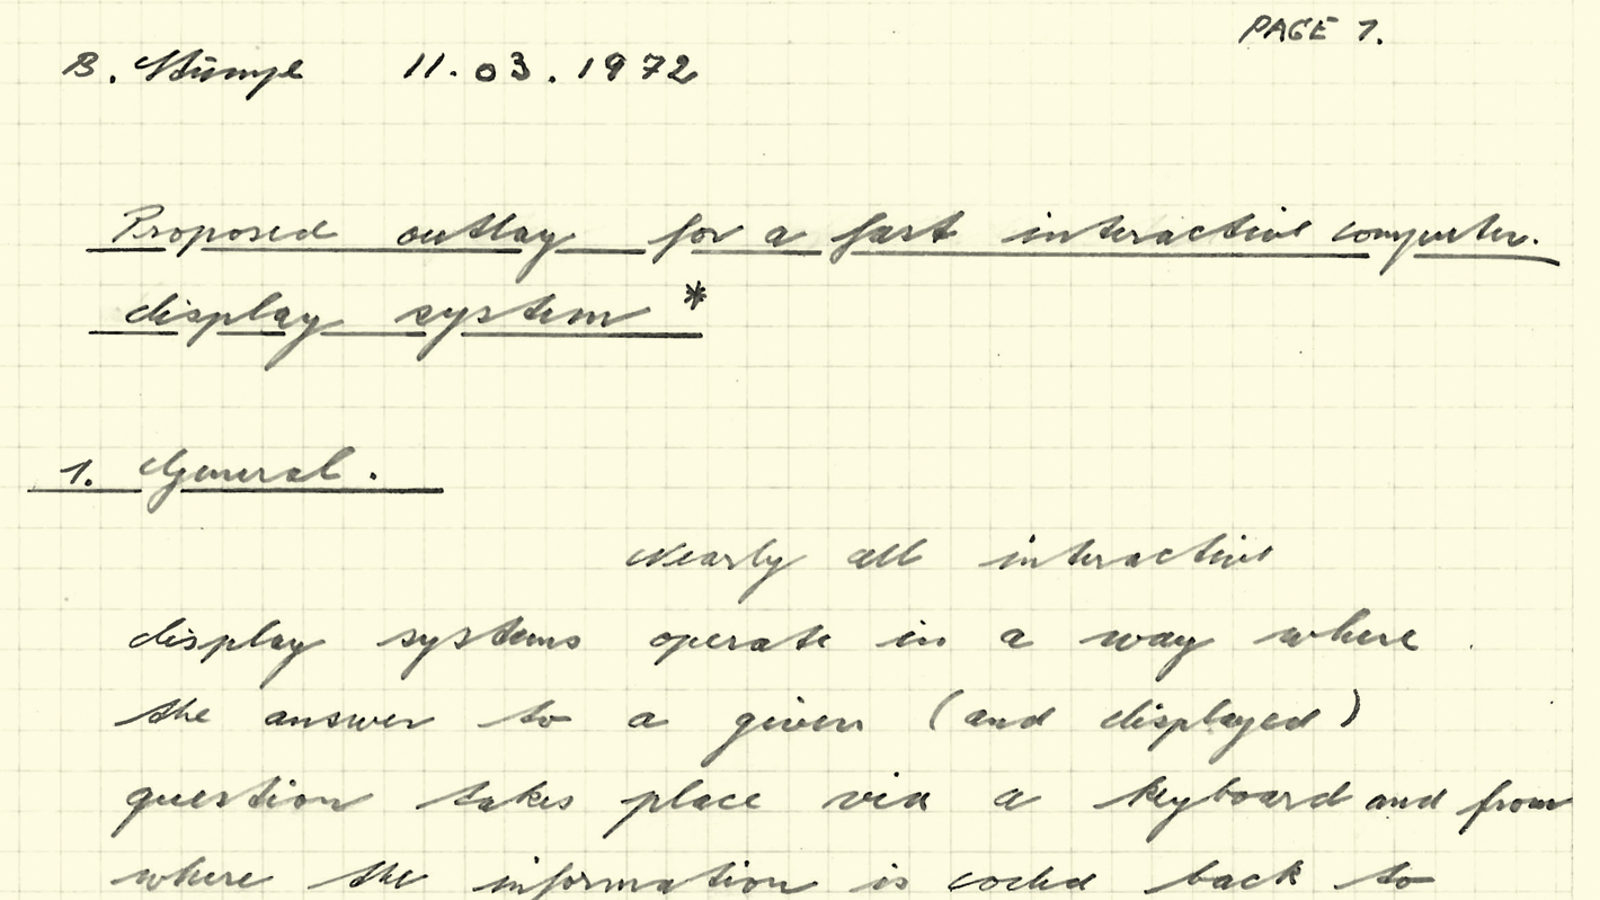 PAGE 1.
B. Stumpe 11.03.1972
Proposed outlay for a fast interactive computer.
display system *
1. General.
Nearly all interactive
display systems operate in a way where
the answer to a given (and displayed)
question takes place via a keyboard and from
where the information is coded back to